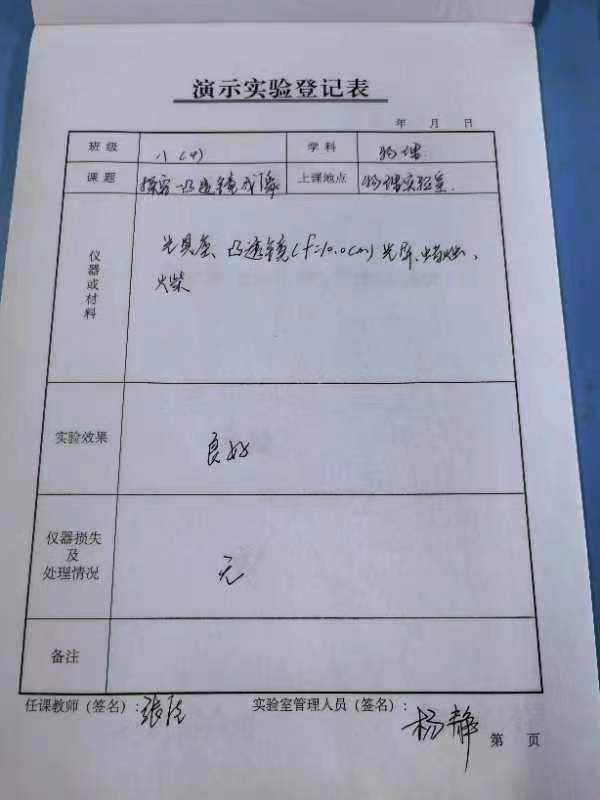 演示实验登记表
年 月 日
班级 八(四) 学科 物理
课题 探究凸透镜成像 上课地点 物理实验室
仪器或材料 光具座、凸透镜(f=10.0cm)光屏、蜡烛、
火柴
实验效果 良好
仪器损失
及
处理情况 无
备注
任课教师(签名): 张 实验室管理人员(签名): 杨静
第 页